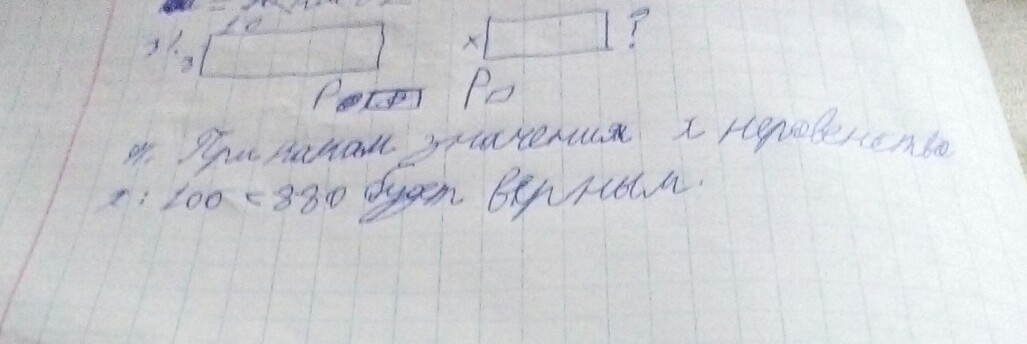 10
3
x
?
P
P
При каком значения x неровенство
x : 100 < 880 будет верным.